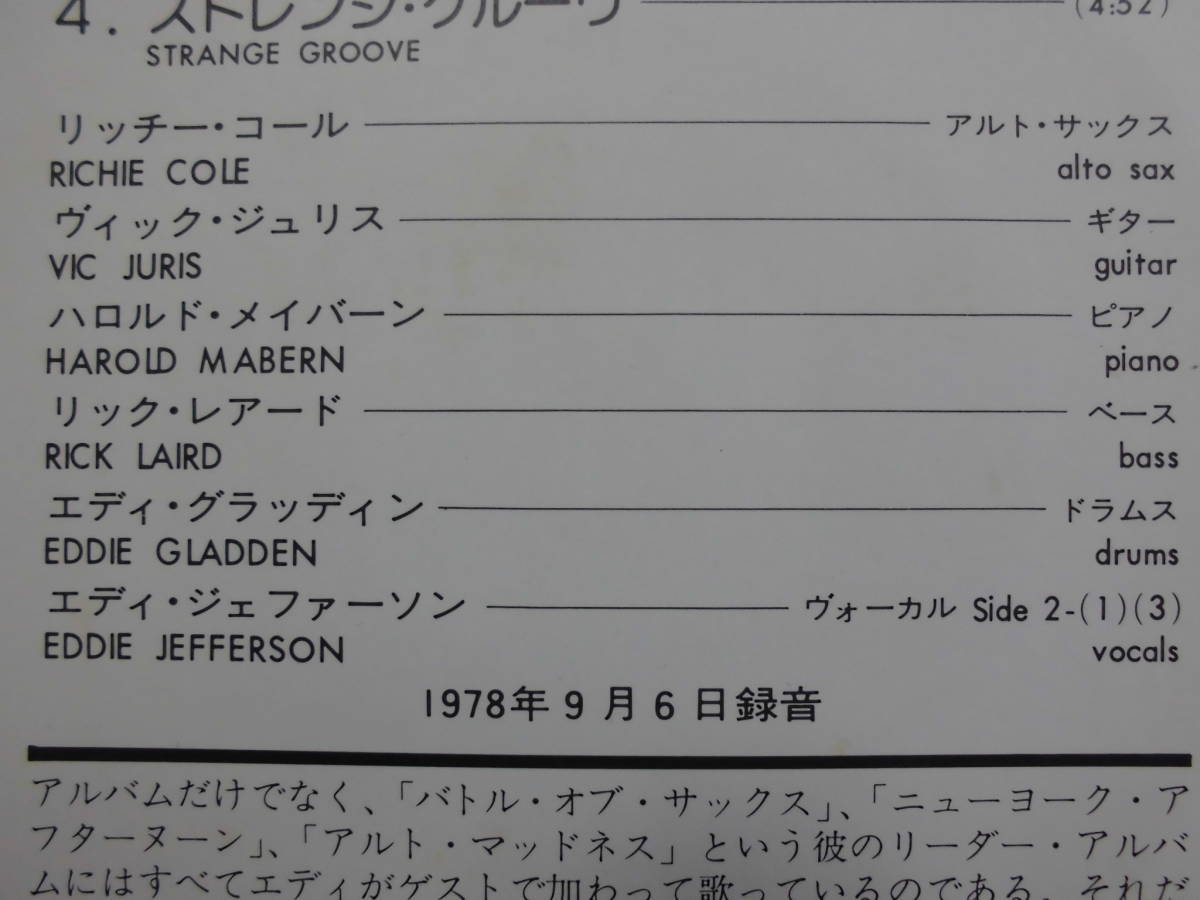 4. ストレンジ・グルーヴ (4:52)
STRANGE GROOVE
リッチー・コール アルト・サックス
RICHIE COLE alto sax
ヴィック・ジュリス ギター
VIC JURIS guitar
ハロルド・メイバーン ピアノ
HAROLD MABERN piano
リック・レアード ベース
RICK LAIRD bass
エディ・グラッディン ドラムス
EDDIE GLADDEN drums
エディ・ジェファーソン ヴォーカル Side 2-(1)(3)
EDDIE JEFFERSON vocals
1978年9月6日録音
アルバムだけでなく、「バトル・オブ・サックス」、「ニューヨーク・ア
フターヌーン」、「アルト・マッドネス」という彼のリーダー・アルバ
ムにはすべてエディがゲストで加わって歌っているのである。それだ